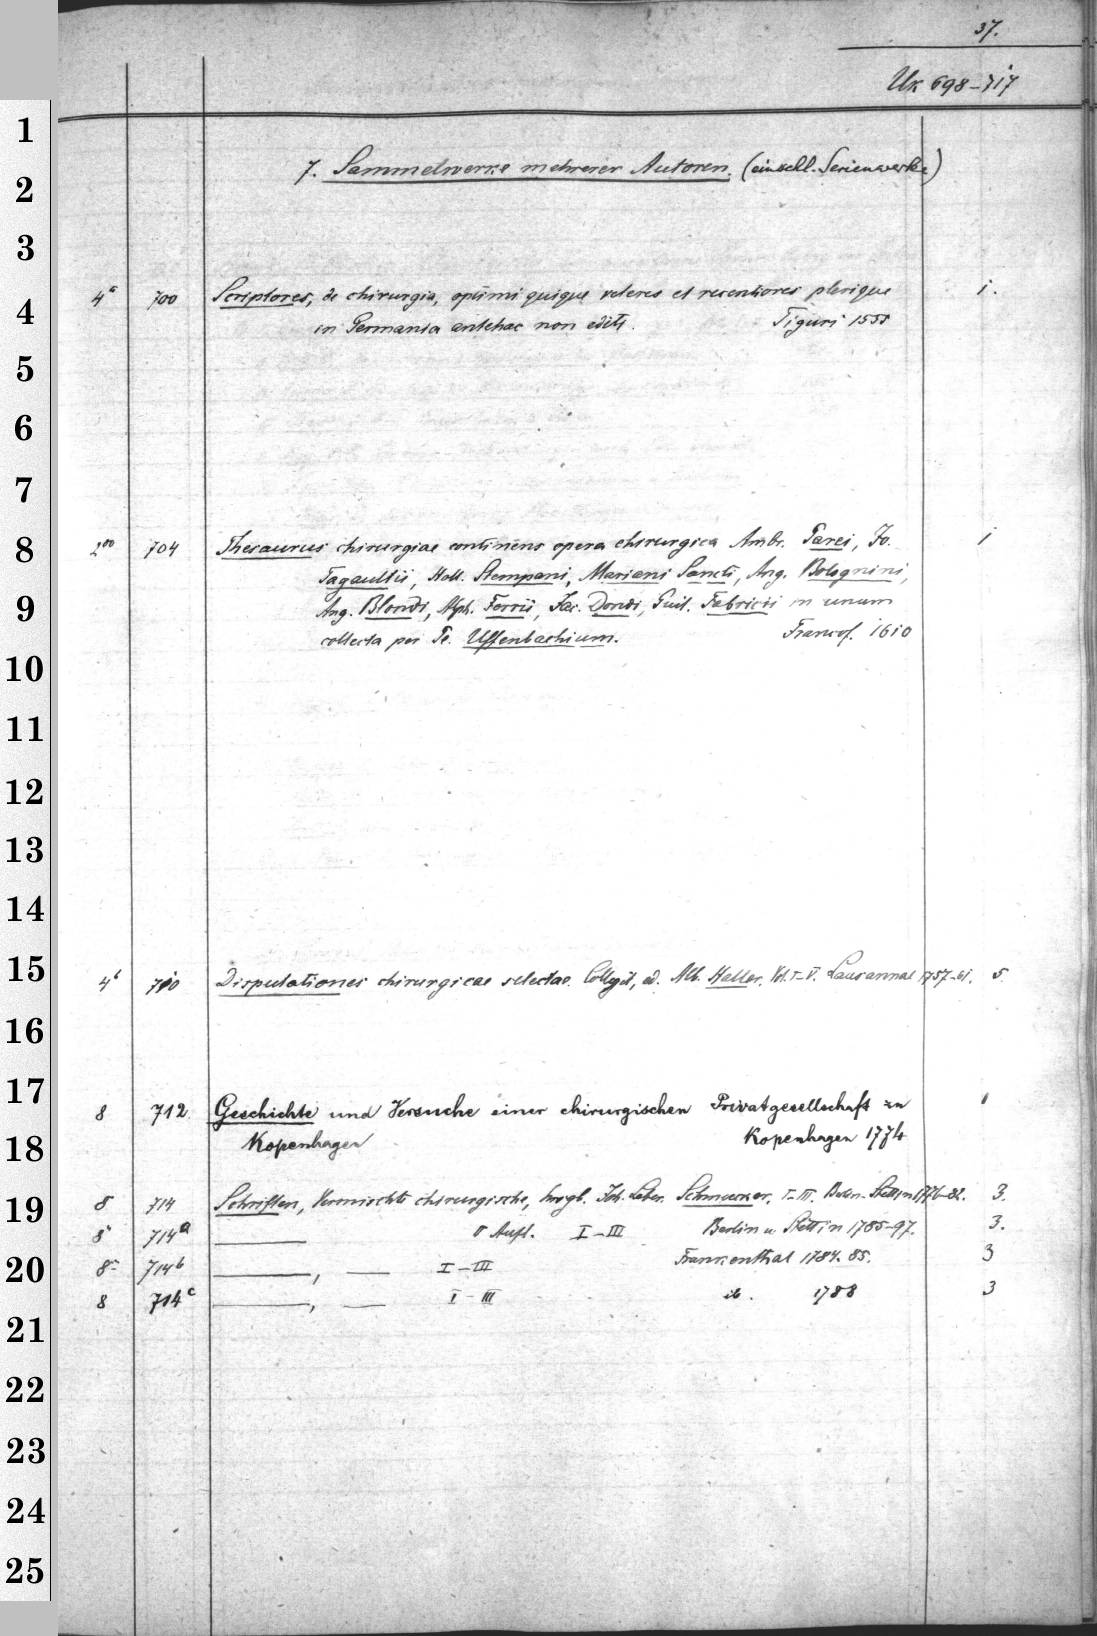 37.
Uk 698-717
1
7. Sammelwerke mehrerer Autoren. (einschl. Serienwerke)
2
3
4° 700 Scriptores, de chirurgia, optimi quique veteres et recentiores plerique 1.
4
in Germania antehac non editi. Tiguri 1555
5
6
7
8
2°° 704 Thesaurus chirurgiae continens opera chirurgica Ambr. Parei, Jo. 1
Tagaultii, Holl. Stempani, Mariani Sancti, Ang. Bolognini,
9
Ang. Blondi, Alph. Ferrii, Jac. Dondi, Guil. Fabricii in unum
collecta per Pe. Uffenbachium. Francof. 1610
10
11
12
13
14
15
4° 710 Disputationes chirurgicae selectae. Collegit, ed. Alb. Haller. Vol. I-V. Lausannae 1757-61. 5
16
17
8 712 Geschichte und Versuche einer chirurgischen Privatgesellschaft zu 1
18
Kopenhagen Kopenhagen 1774
19
8 714 Schriften, Vermischte chirurgische, hrsgb. Joh. Leber. Schmucker. I-III. Berlin-Stettin 1776-82. 3.
8° 714a Aufl. I-III Berlin u. Stettin 1785-97. 3.
20
8° 714b I-III Frankenthal 1784-85. 3
8 714c I-III ib. 1788 3
21
22
23
24
25